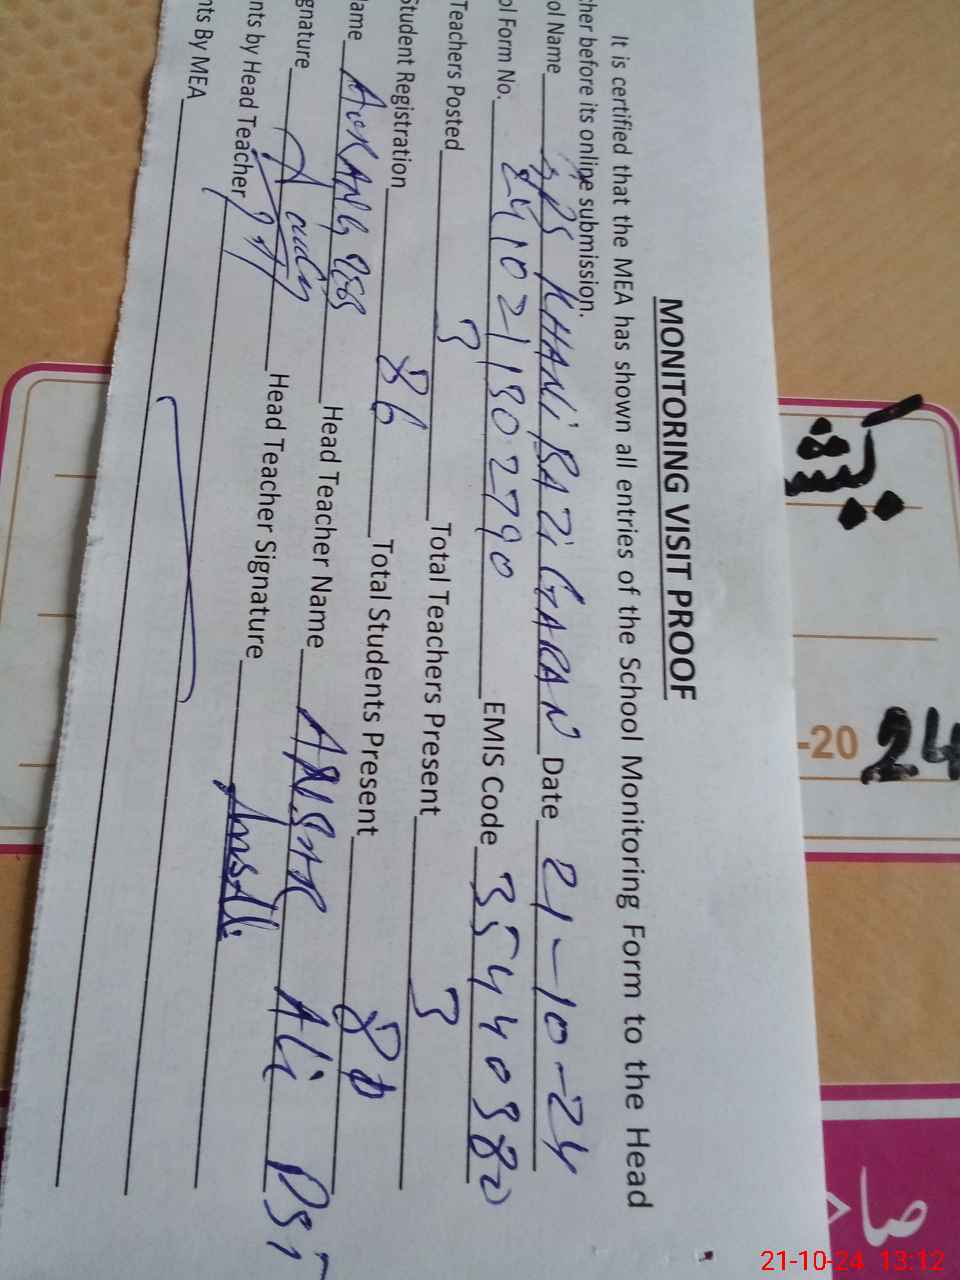 MONITORING VISIT PROOF
It is certified that the MEA has shown all entries of the School Monitoring Form to the Head
cher before its online submission.
ol Name GPS KHANI BAZi GARAN Date 21-10-24
ol Form No. 2410211302790 EMIS Code 35440380
Teachers Posted 3 Total Teachers Present 3
Student Registration 86 Total Students Present 80
ame AURANG ZEB Head Teacher Name ANSAR Ali PST
gnature Head Teacher Signature AnsAli
nts by Head Teacher
nts By MEA
-2024
صا
21-10-24 13:12